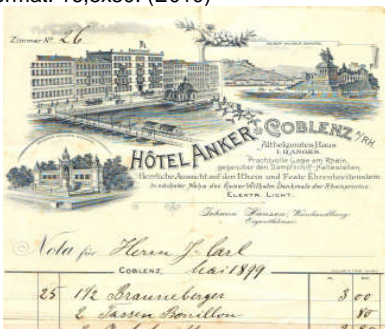 ormat. 18,5x30. (2010)
Zimmer Nº 26
HÔTEL ANKER COBLENZ A/RH.
Altbekanntes Haus
I. RANGES.
Prachtvolle Lage am Rhein,
gegenüber den Dampfschiff-Haltestellen.
Herrliche Aussicht auf den Rhein und Feste Ehrenbreitenstein.
In nächster Nähe des Kaiser Wilhelm Denkmals der Rheinprovinz.
ELEKTR. LICHT.
Johann Hansen, Weinhandlung
Eigenthümer.
Nota für Herrn J. Carl
COBLENZ, Mai 1899
25 1/2 Brauneberger 3 00
2 Tassen Bouillon 80